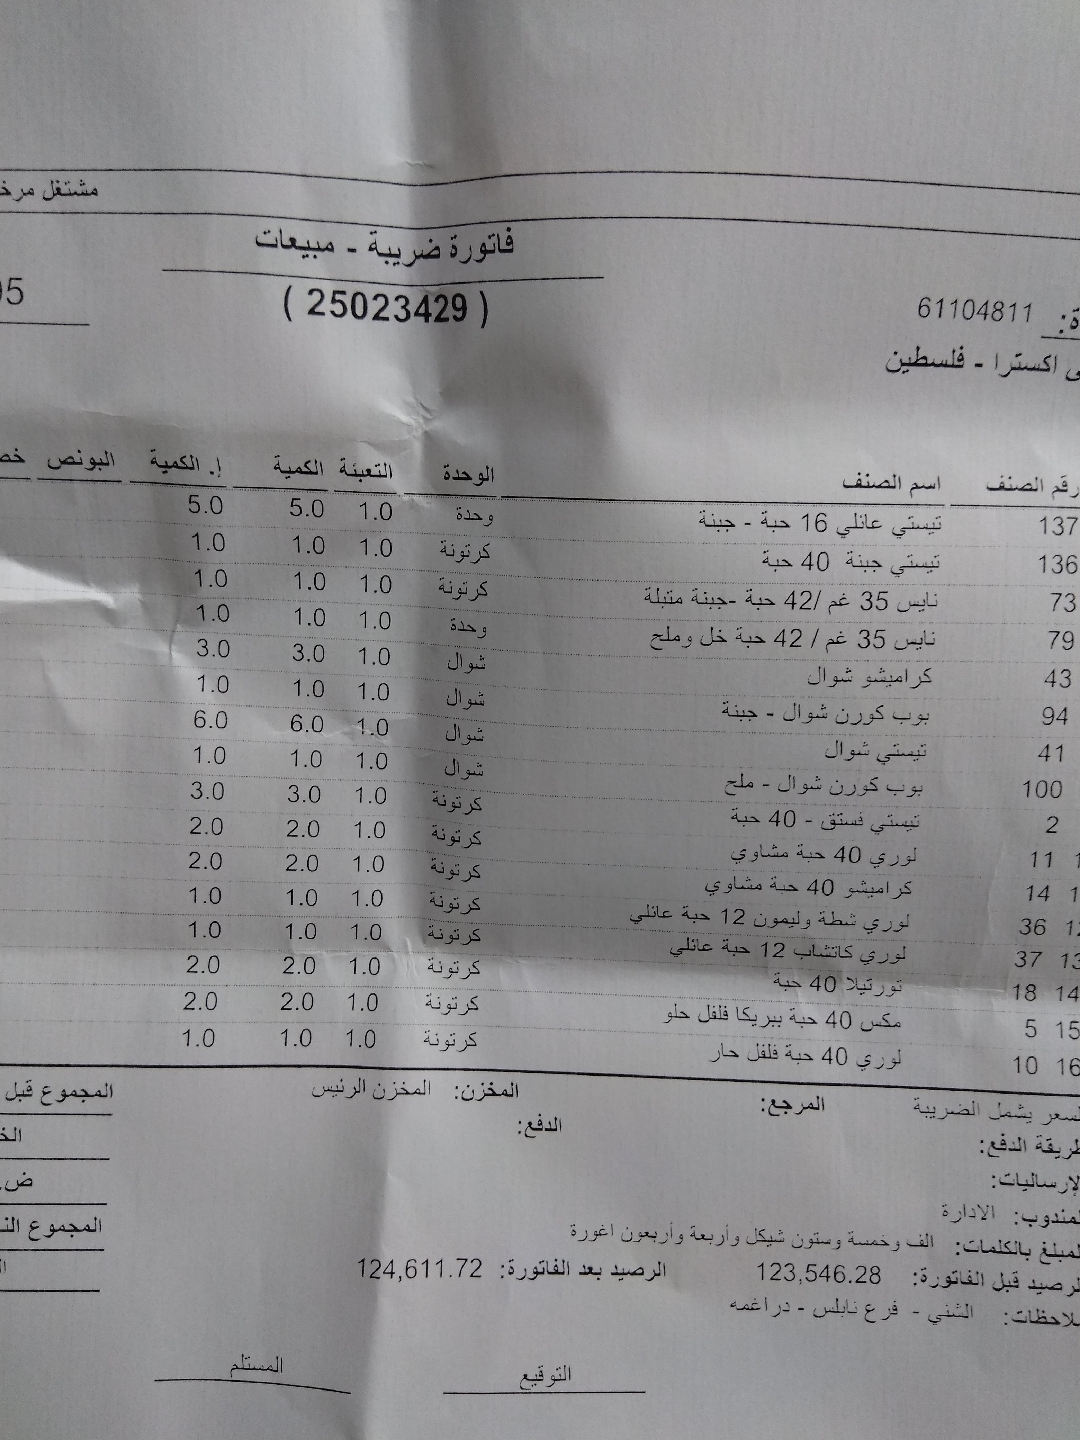 مشتغل مرخ
فاتورة ضريبة - مبيعات
( 25023429 )
61104811
اكسترا - فلسطين
رقم الصنف اسم الصنف الوحدة التعبئة الكمية إ. الكمية البونص خص
137 تيستي عائلي 16 حبة - جبنة وحدة 1.0 5.0 5.0
136 تيستي جبنة 40 حبة كرتونة 1.0 1.0 1.0
73 نايس 35 غم /42 حبة -جبنة متبلة كرتونة 1.0 1.0 1.0
79 نايس 35 غم / 42 حبة خل وملح وحدة 1.0 1.0 1.0
43 كراميشو شوال شوال 1.0 3.0 3.0
94 بوب كورن شوال - جبنة شوال 1.0 1.0 1.0
41 تيستي شوال شوال 1.0 6.0 6.0
100 بوب كورن شوال - ملح شوال 1.0 1.0 1.0
2 تيستي فستق - 40 حبة كرتونة 1.0 3.0 3.0
11 لوري 40 حبة مشاوي كرتونة 1.0 2.0 2.0
14 كراميشو 40 حبة مشاوي كرتونة 1.0 2.0 2.0
36 لوري شطة وليمون 12 حبة عائلي كرتونة 1.0 1.0 1.0
13 37 لوري كاتشاب 12 حبة عائلي كرتونة 1.0 1.0 1.0
14 18 تورتيلا 40 حبة كرتونة 1.0 2.0 2.0
15 5 مكس 40 حبة ببريكا فلفل حلو كرتونة 1.0 2.0 2.0
16 10 لوري 40 حبة فلفل حار كرتونة 1.0 1.0 1.0
السعر يشمل الضريبة المرجع: المخزن: المخزن الرئيس المجموع قبل
طريقة الدفع: الدفع: الخ
الإرساليات: ض.
المندوب: الادارة المجموع الن
المبلغ بالكلمات: الف وخمسة وستون شيكل وأربعة وأربعون اغورة
الرصيد قبل الفاتورة: 123,546.28 الرصيد بعد الفاتورة: 124,611.72
ملاحظات: الشني - فرع نابلس - دراغمه
التوقيع المستلم